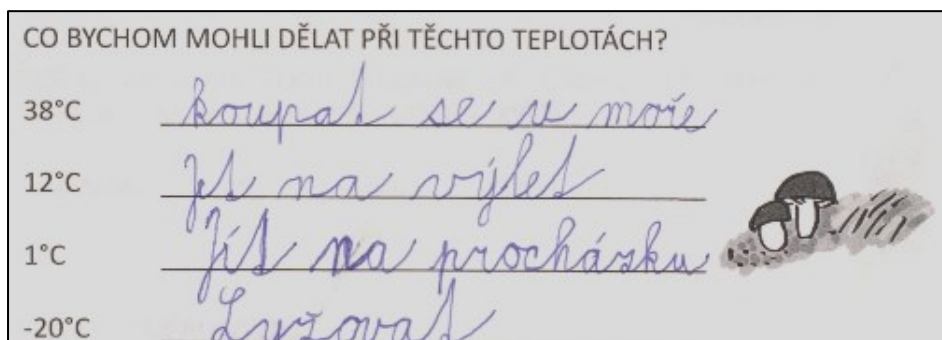 CO BYCHOM MOHLI DĚLAT PŘI TĚCHTO TEPLOTÁCH?
38°C koupat se v moře
12°C Jet na výlet
1°C Jít na procházku
-20°C Lyžovat